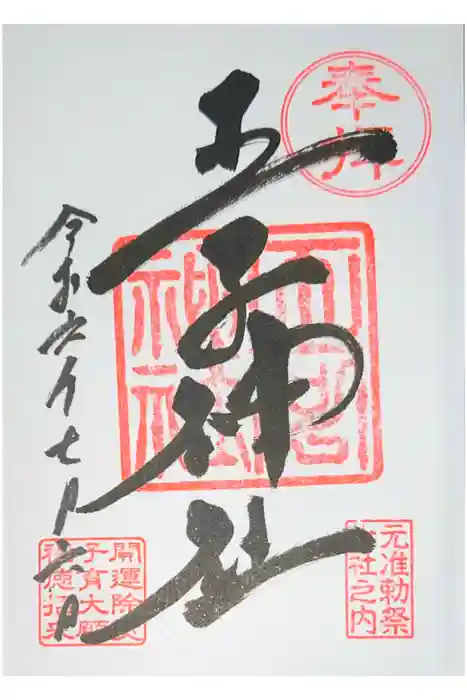 奉拝
王子神社
元准勅祭
十社之内
令和六年七月六日
開運除災
子育大願
福徳招来